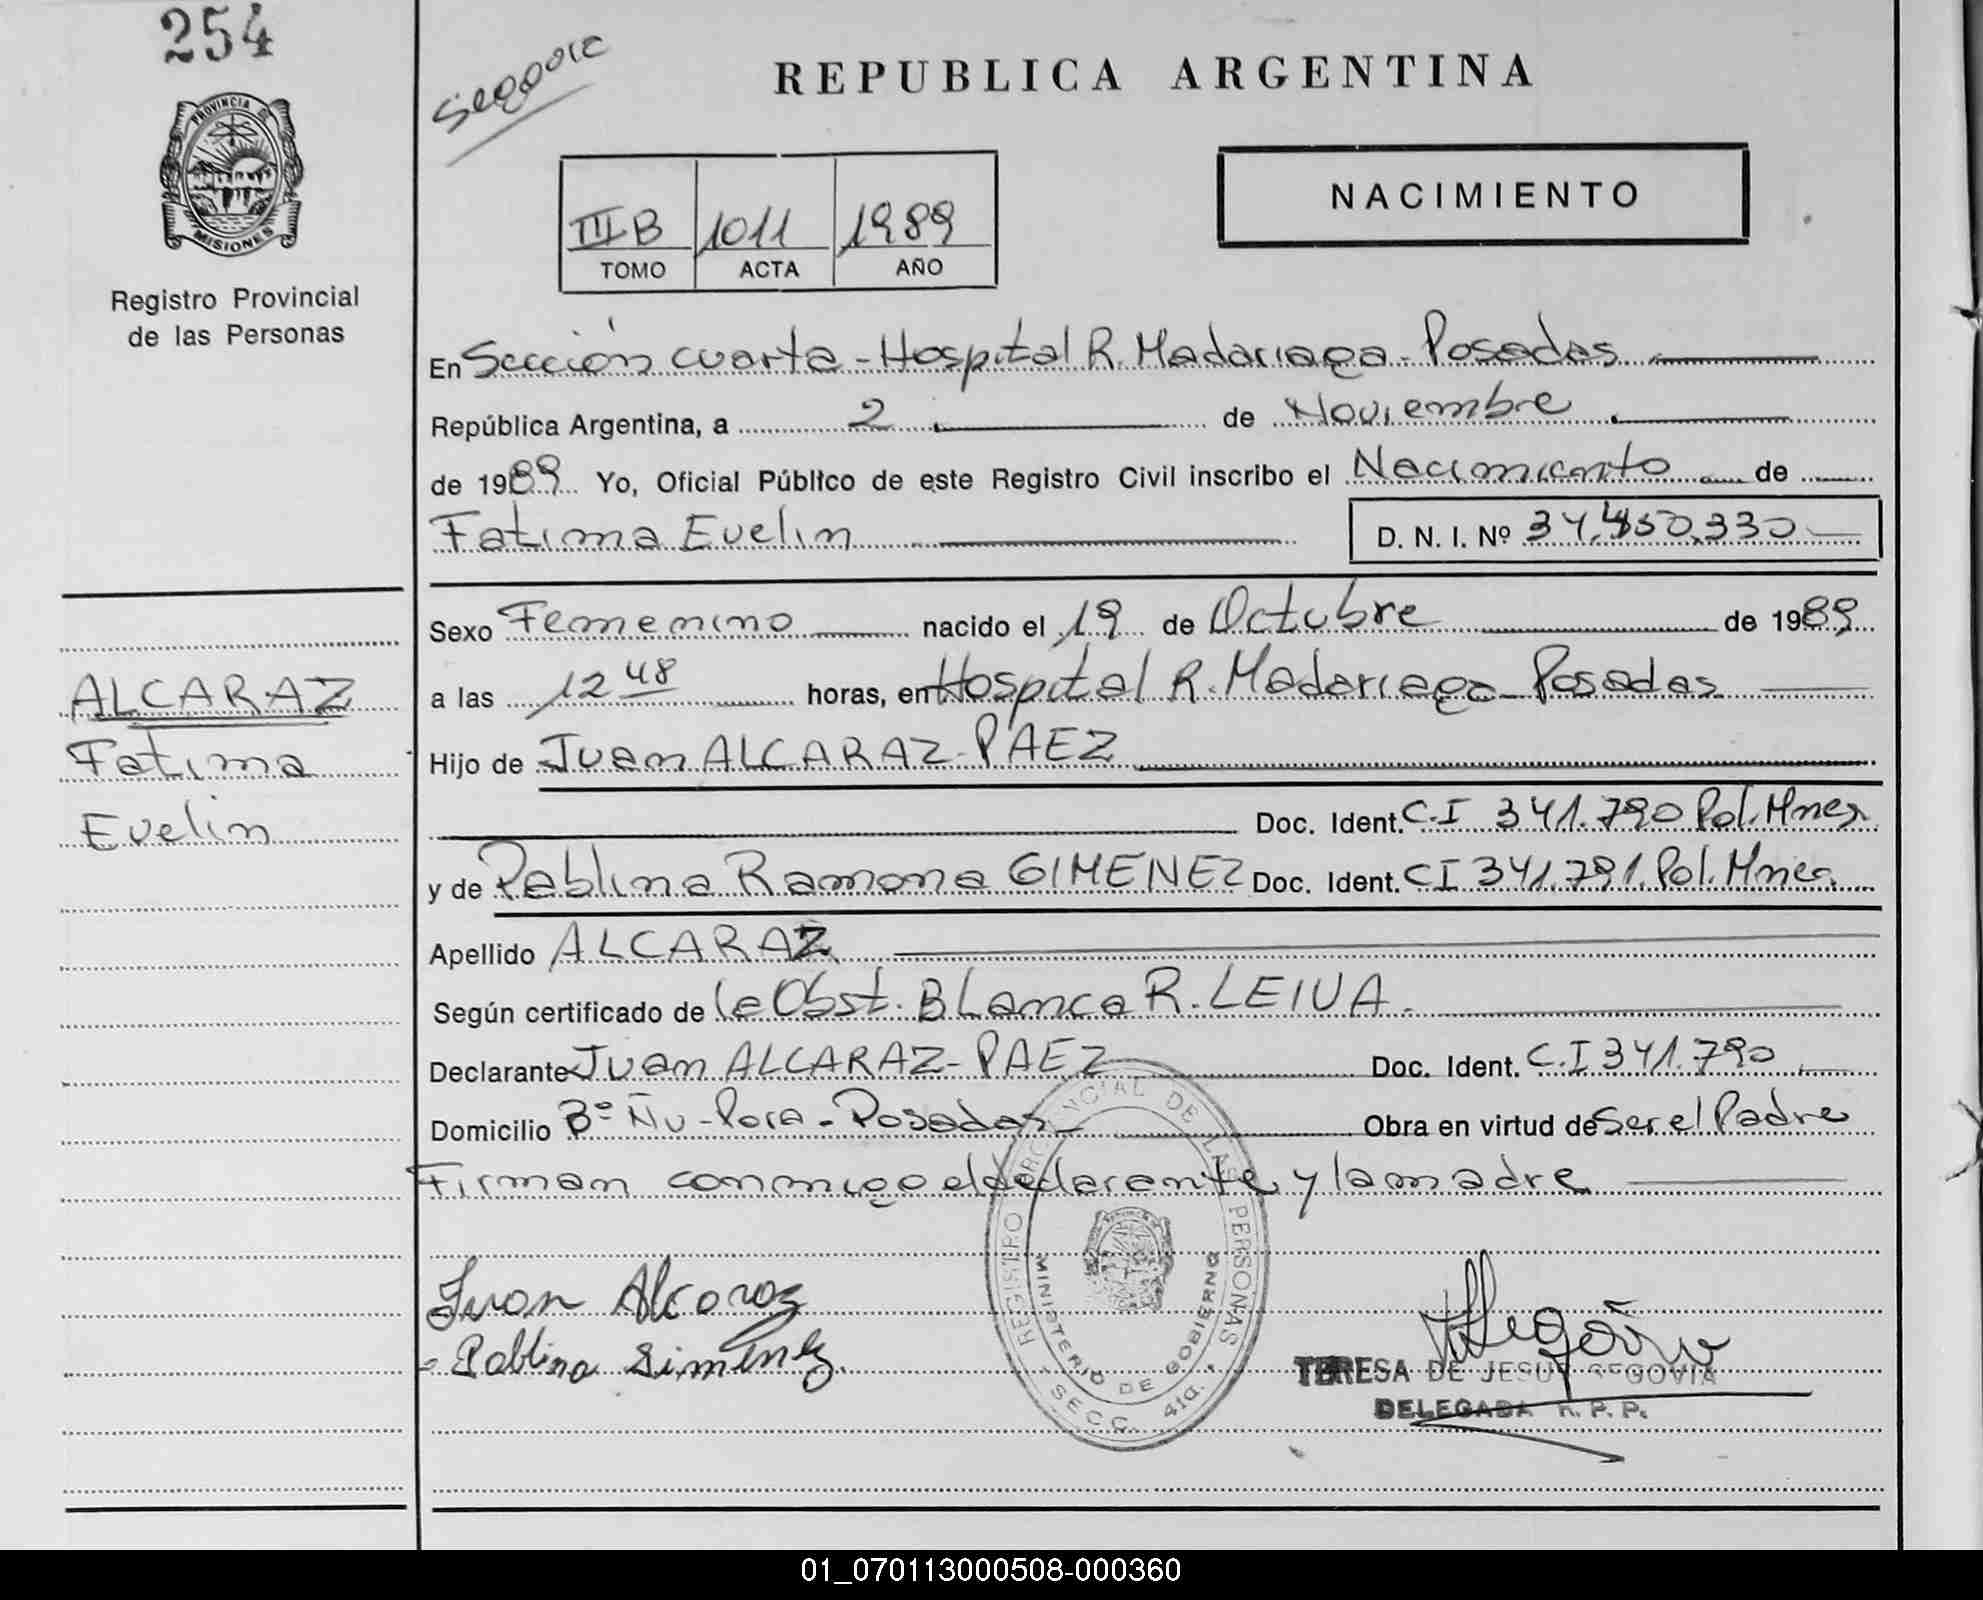 254
Segovia
REPUBLICA ARGENTINA
PROVINCIA
MISIONES
Registro Provincial
de las Personas
III B 1011 1989
TOMO ACTA AÑO
NACIMIENTO
En Sección cuarta - Hospital R. Madariaga - Posadas
República Argentina, a 2 de Noviembre
de 1989 Yo, Oficial Público de este Registro Civil inscribo el Nacimiento de
Fatima Evelin D. N. I. Nº 34.450.330
Sexo Femenino nacido el 19 de Octubre de 1989
a las 12 48 horas, en Hospital R. Madariaga - Posadas
Hijo de Juan ALCARAZ-PAEZ
Doc. Ident. C.I 341.790 Pol. Mnes
y de Pablina Ramona GIMENEZ Doc. Ident. CI 341.791. Pol. Mnes.
Apellido ALCARAZ
Según certificado de la Obst. Blanca R. LEIVA.
Declarante Juan ALCARAZ-PAEZ Doc. Ident. C.I 341.790
Domicilio Bº Ñu-Pora - Posadas Obra en virtud de Ser el Padre
Firman conmigo el declarante y la madre
ALCARAZ
Fatima
Evelin
Juan Alcaraz
Pablina Gimenez.
REGISTRO PROVINCIAL DE LAS PERSONAS
MINISTERIO DE GOBIERNO
SECC. 4ta.
TERESA DE JESUS SEGOVIA
DELEGADA R. P. P.
01_070113000508-000360